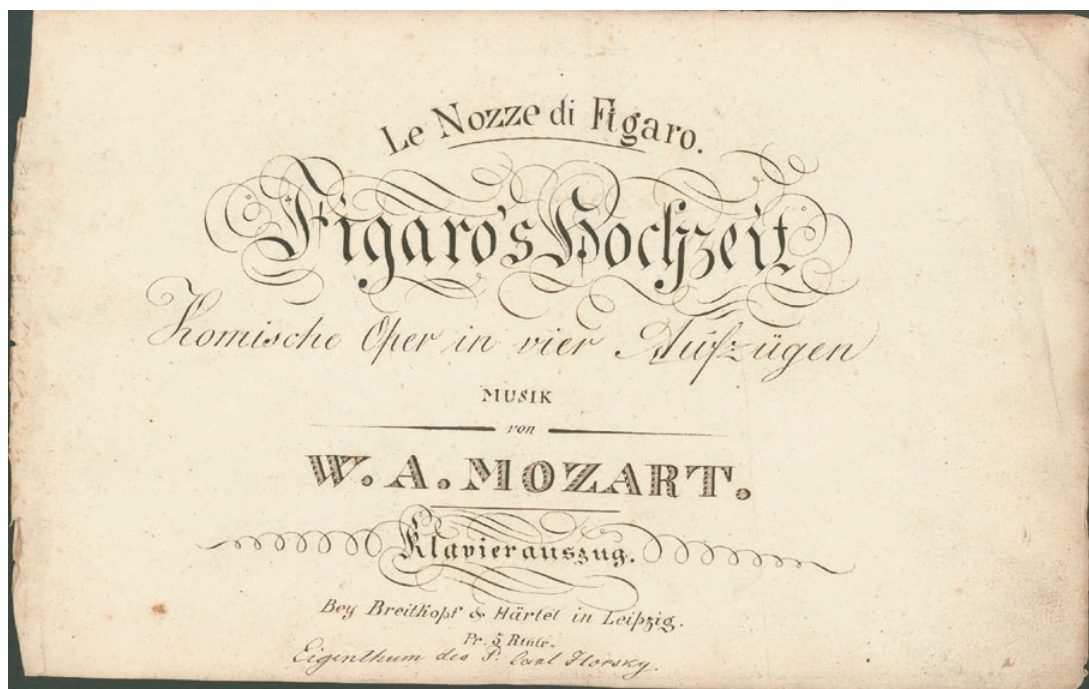 Le Nozze di Figaro.
Figaro's Hochzeit
Komische Oper in vier Aufzügen
MUSIK
von
W. A. MOZART.
Klavierauszug.
Bey Breitkopf & Härtel in Leipzig.
Pr. 5 Rthlr.
Eigenthum des P. Carl Horsky.